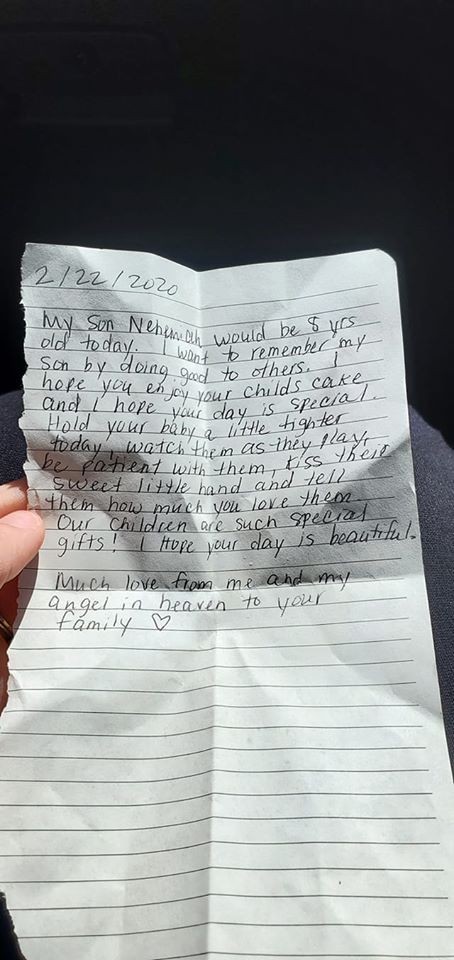 2/22/2020
My Son Nehemiah would be 8 yrs
old today. I want to remember my
son by doing good to others. I
hope you enjoy your childs cake
and I hope your day is special.
Hold your baby a little tighter
today, watch them as they play,
be patient with them, kiss their
sweet little hand and tell
them how much you love them
Our children are such special
gifts! I Hope your day is beautiful.
Much love from me and my
angel in heaven to your
family ♡